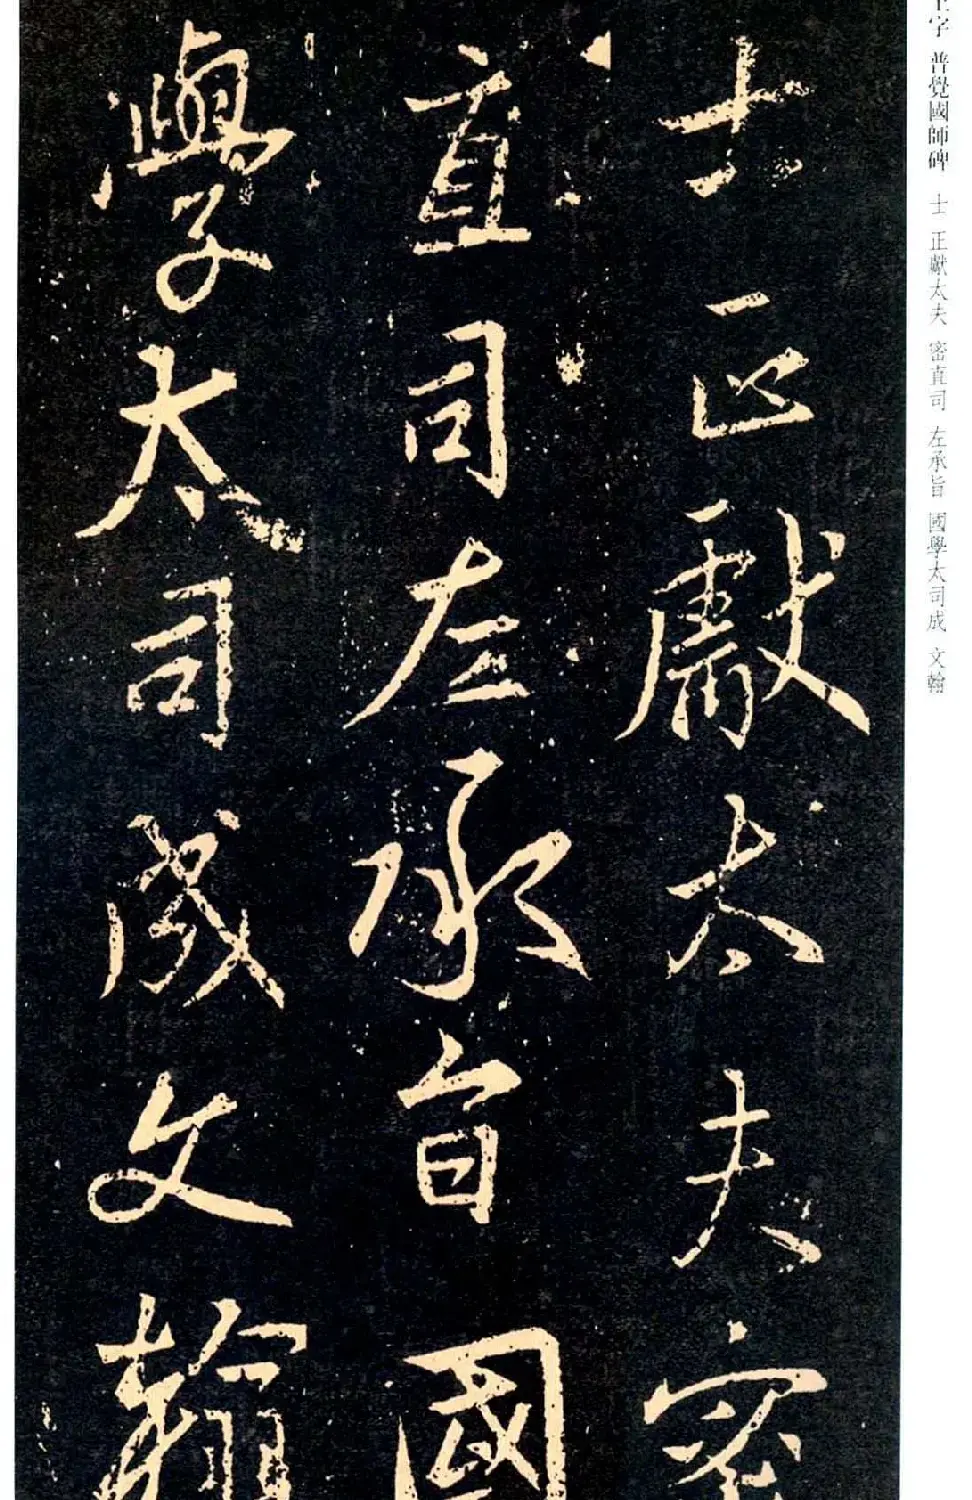 字 普覺國師碑 士 正獻太夫 密直司 左承旨 國學太司成 文翰
士正獻太夫密
直司左承旨國
學太司成文翰